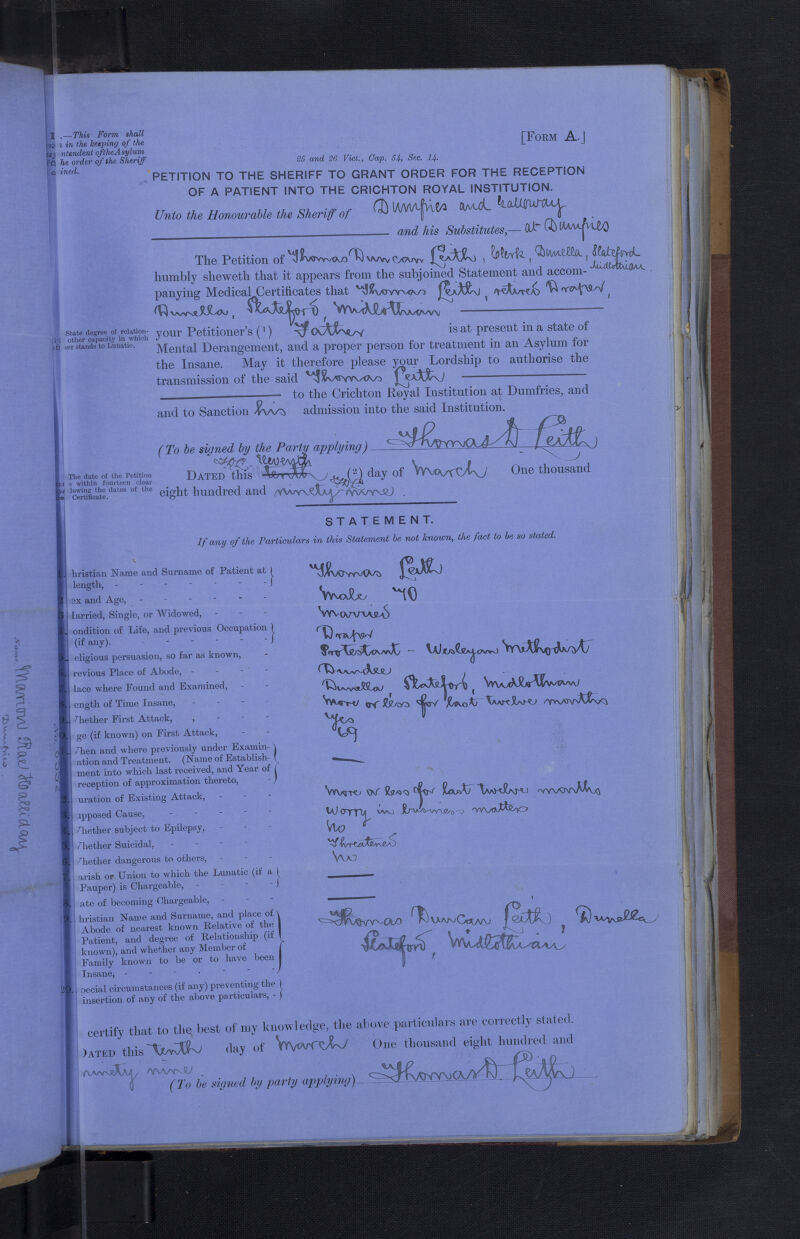 .—This Form shall
in the keeping of the
ntendent of the Asylum
he order of the Sheriff
ined.
[FORM A.]
25 and 26 Vict., Cap. 54, Sec. 14.
PETITION TO THE SHERIFF TO GRANT ORDER FOR THE RECEPTION
OF A PATIENT INTO THE CRICHTON ROYAL INSTITUTION.
Unto the Honourable the Sheriff of Dumfries and Galloway
and his Substitutes,— at Dumfries
The Petition of Thomas Duncan Leith, Clerk, Dunella, Slateford Midlothian
humbly sheweth that it appears from the subjoined Statement and accom-
panying Medical Certificates that Thomas Leith, retired Draper,
Dunella, Slateford, Midlothian
State degree of relation-
other capacity in which
er stands to Lunatic.
your Petitioner's (1) Father is at present in a state of
Mental Derangement, and a proper person for treatment in an Asylum for
the Insane. May it therefore please your Lordship to authorise the
transmission of the said Thomas Leith
to the Crichton Royal Institution at Dumfries, and
and to Sanction his admission into the said Institution.
(To be signed by the Party applying) Thomas D Leith
The date of the Petition
within fourteen clear
lowing the dates of the
Certificate.
Eleventh
DATED this tenth (2) day of March One thousand
eight hundred and ninety-nine.
STATEMENT.
If any of the Particulars in this Statement be not known, the fact to be so stated.
hristian Name and Surname of Patient at
length, - Thomas Leith
ex and Age, - Male 70
arried, Single, or Widowed, - Married
ondition of Life, and previous Occupation
(if any). Draper
eligious persuasion, so far as known, - Protestant - Wesleyan Methodist
revious Place of Abode, - Dundee
lace where Found and Examined, - Dunella, Slateford, Midlothian
ength of Time Insane, - More or less for last twelve months
hether First Attack, - Yes
ge (if known) on First Attack, 69
hen and where previously under Examin-
ation and Treatment. (Name of Establish-
ment into which last received, and Year of
reception of approximation thereto, —
uration of Existing Attack, - More or less for last twelve months
upposed Cause, - Worry in business matters
hether subject to Epilepsy, - No
hether Suicidal, - Threatened
hether dangerous to others, - No
arish or Union to which the Lunatic (if a
Pauper) is Chargeable, - —
ate of becoming Chargeable, - —
hristian Name and Surname, and place of
Abode of nearest known Relative of the
Patient, and degree of Relationship (if
known), and whether any Member of
Family known to be or to have been
Insane, -
Thomas Duncan Leith, Dunella
Slateford, Midlothian
20. pecial circumstances (if any) preventing the
insertion of any of the above particulars, -
certify that to the best of my knowledge, the above particulars are correctly stated.
DATED this tenth day of March One thousand eight hundred and
ninety nine.
(To be signed by party applying) Thomas D. Leith
Name Marion Rae Halliday
Dumfries